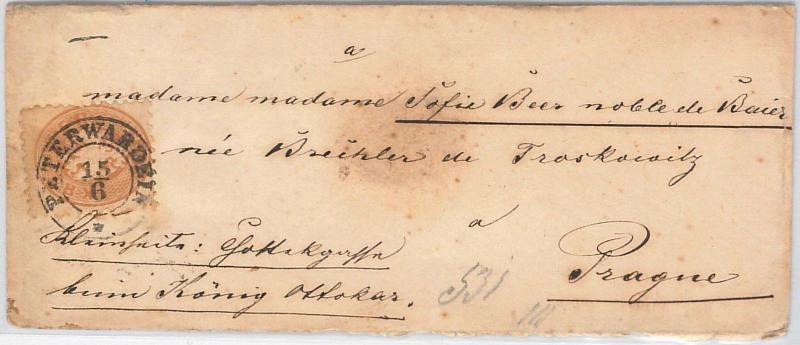 a
madame madame Sofie Beer noble de Baier
née Brechler de Troskowitz
a
Prague
Kleinseite:
beim König Ottokar.
PETERWARDEIN
15
6
531
III